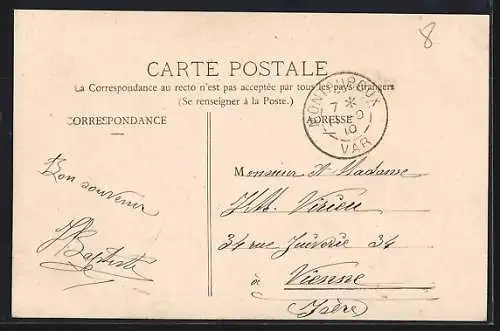 8
CARTE POSTALE
La Correspondance au recto n'est pas acceptée par tous les pays étrangers
(Se renseigner à la Poste.)
CORRESPONDANCE
ADRESSE
MONTAUROUX
7 *
10
VAR
Bon souvenir
Baptiste
Monsieur et Madame
Virieu
34 rue Juiverie 34
à Vienne
(Isère)